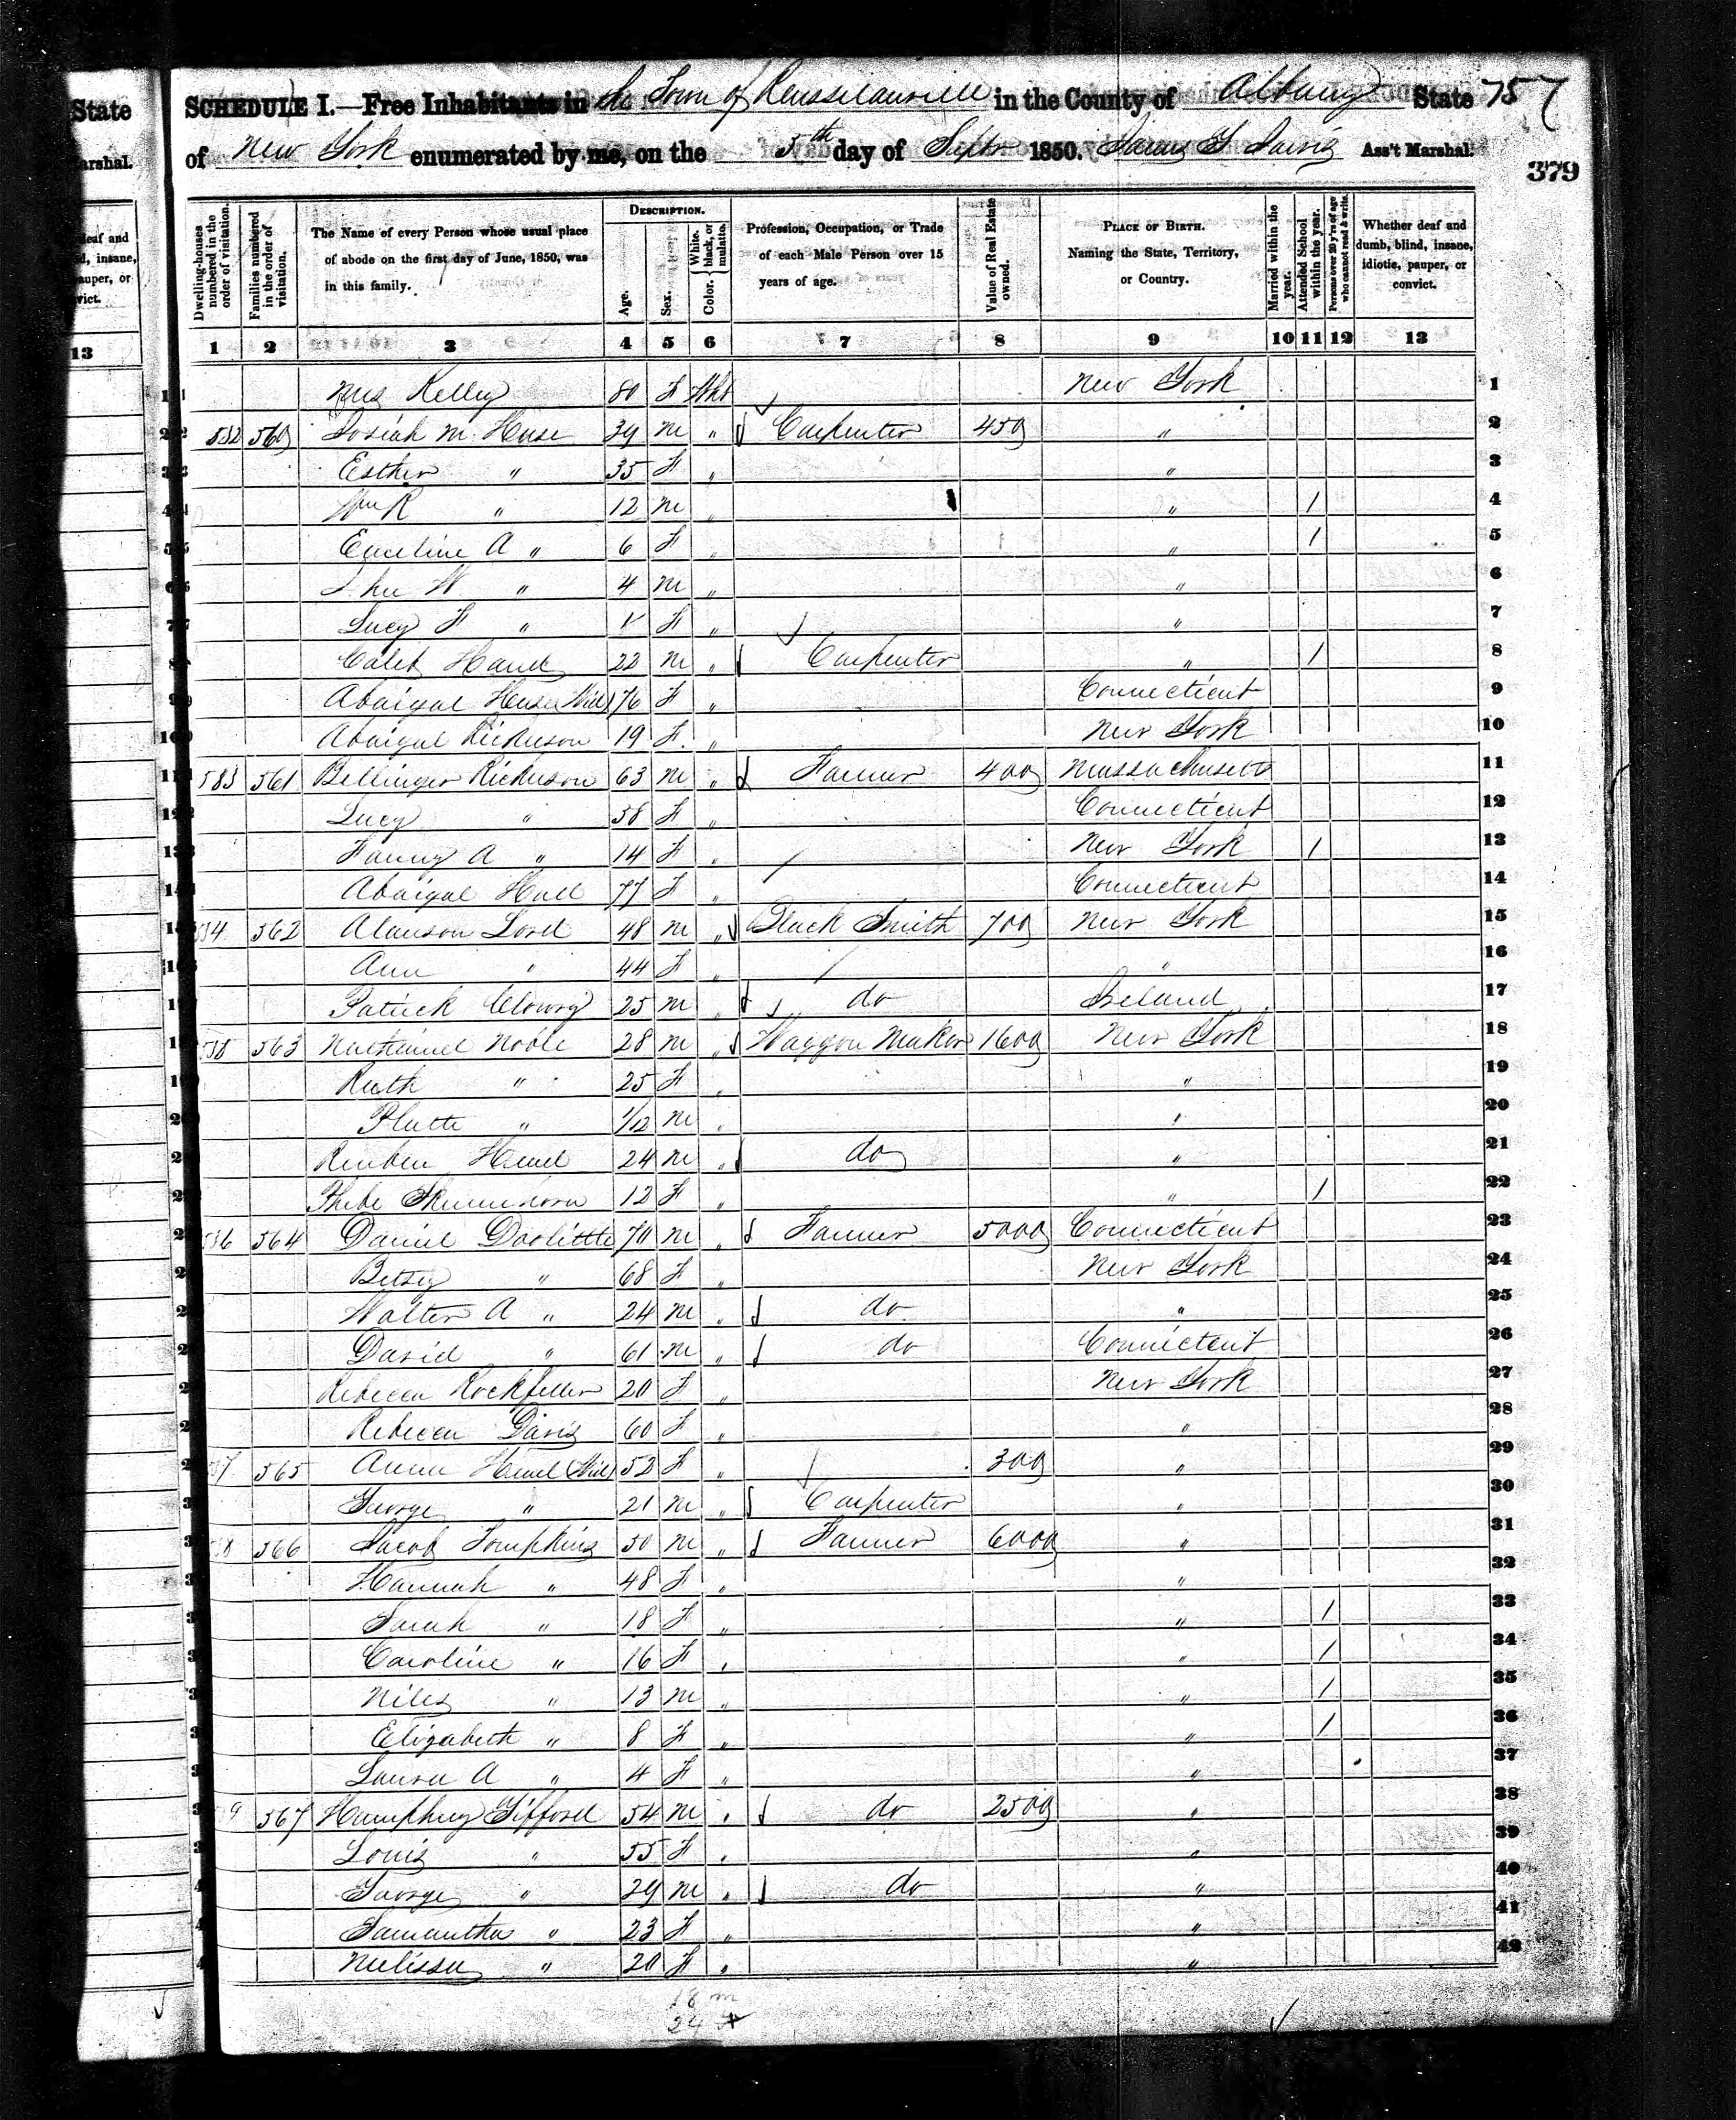 State
arshal.
eaf and
d, insane,
auper, or
vict.
13
SCHEDULE I.—Free Inhabitants in the Town of Rensselaerville in the County of Albany State 757
of New York enumerated by me, on the 5th day of Septr 1850. Ass't Marshal.
379
Dwelling-houses numbered in the order of visitation.
Families numbered in the order of visitation.
The Name of every Person whose usual place of abode on the first day of June, 1850, was in this family.
DESCRIPTION.
Age.
Sex.
Color. { White, black, or mulatto.
Profession, Occupation, or Trade of each Male Person over 15 years of age.
Value of Real Estate owned.
PLACE OF BIRTH. Naming the State, Territory, or Country.
Married within the year.
Attended School within the year.
Persons over 20 y'rs of age who cannot read & write.
Whether deaf and dumb, blind, insane, idiotic, pauper, or convict.
1 2 3 4 5 6 7 8 9 10 11 12 13
Kelley 80 F Wht New York 1
532 560 Josiah M. 39 M " Carpenter 450 " 2
Esther " 35 F " " 3
Wm R " 12 M " " / 4
Emeline A " 6 F " " / 5
W " 4 M " " 6
Lucy F " F " " 7
Caleb 22 M " Carpenter " / 8
Abaigal (Wid) 76 F " Connecticut 9
Abaigal Rickuson 19 F " New York 10
583 561 Bellinger Rickuson 63 M " Farmer 400 Massachusetts 11
Lucy " 58 F " Connecticut 12
Fanny A " 14 F " New York / 13
Abaigal Hall 77 F " Connecticut 14
534 562 Alanson Lord 48 M " Black Smith 700 New York 15
Ann " 44 F " " 16
Patrick 25 M " do Ireland 17
563 Nathaniel Noble 28 M " Waggon Maker 1600 New York 18
Ruth " 25 F " " 19
Platte " 1/12 M " 20
Reuben 24 M " do " 21
Phebe 12 F " " / 22
536 564 Daniel Doolittle 70 M " Farmer 5000 Connecticut 23
Betsy " 68 F " New York 24
Walter A " 24 M " do " 25
David " 61 M " do Connecticut 26
Rebecca Rockfeller 20 F " New York 27
Rebecca Davis 60 F " " 28
565 Anna (Wid) 52 F " 300 " 29
George " 21 M " Carpenter " 30
566 Jacob Tompkins 50 M " Farmer 6000 " 31
Hannah " 48 F " " 32
Sarah " 18 F " " / 33
Caroline " 16 F " " / 34
Niles " 13 M " " / 35
Elizabeth " 8 F " " / 36
Laura A " 4 F " " 37
9 567 Humphrey Gifford 54 M " do 2500 " 38
Louis " 55 F " " 39
George " 29 M " do " 40
Samantha " 23 F " " 41
Melissa " 20 F " " 42
18 m
24 F